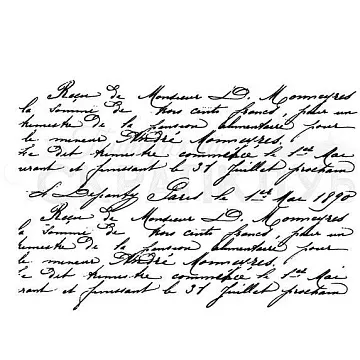 Reçu de Monsieur D. Monnoyres
la Somme de trois cents francs, pour un
trimestre de la pension alimentaire pour
le mineur André Monnoyres,
Le dit trimestre commence le 1er Mai
urant et finissant le 31 Juillet prochain
Paris le 1er Mai 1890
Reçu de Monsieur D. Monnoyres
la Somme de trois cents francs, pour un
trimestre de la pension alimentaire pour
le mineur André Monnoyres,
Le dit trimestre commence le 1er Mai
rant et finissant le 31 Juillet prochain